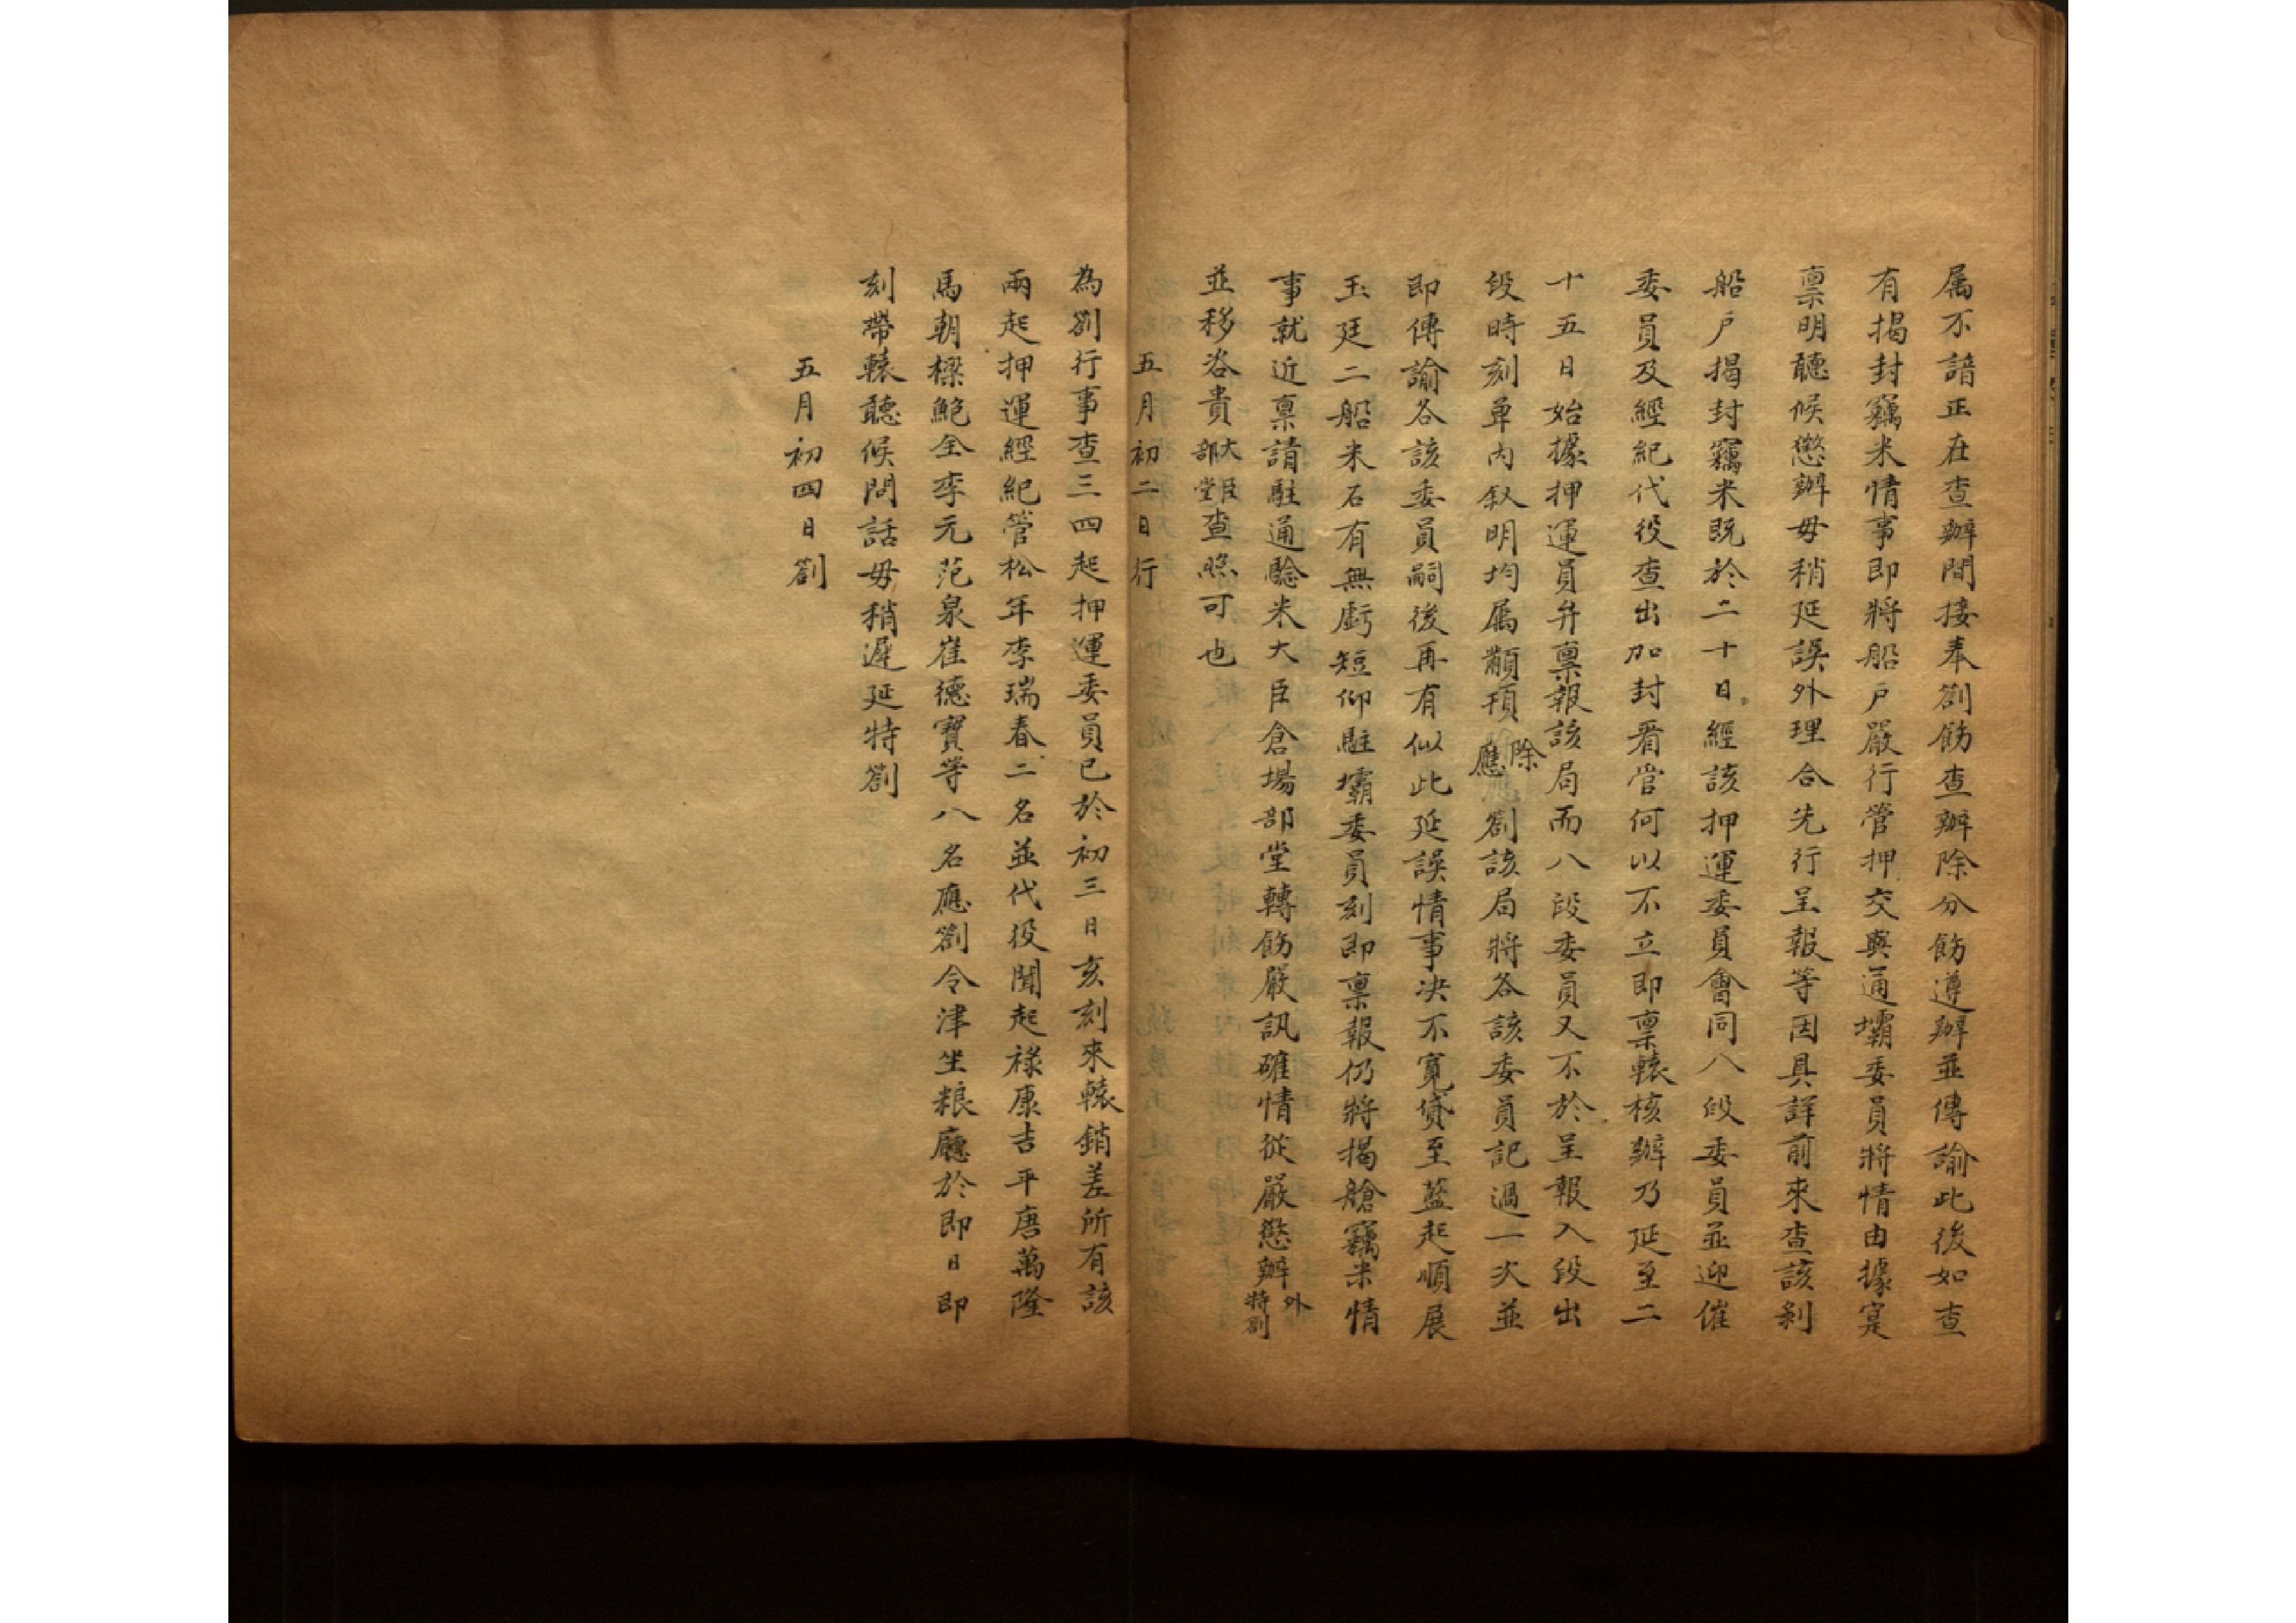 属不諳正在查辦間接奉劄飭查辦除分飭遵辦並傳諭此後如查
有揭封竊米情事即將船戶嚴行管押交與通壩委員將情由據寔
禀明聽候懲辦毋稍延誤外理合先行呈報等因具詳前來查該剝
船戶揭封竊米既於二十日經該押運委員會同八段委員並迎催
委員及經紀代役查出加封看管何以不立即禀轅核辦乃延至二
十五日始據押運員弁禀報該局而八段委員又不於呈報入段出
段時刻單內敘明均属顢頇除應劄該局將各該委員記過一次並
即傳諭各該委員嗣後再有似此延誤情事决不寬貸至藍起順展
玉廷二船米石有無虧短仰駐壩委員刻即禀報仍將揭艙竊米情
事就近禀請駐通驗米大臣倉場部堂轉飭嚴訊確情從嚴懲辦外特劄
並移咨貴大臣部堂查照可也
五月初二日行
為劄行事查三四起押運委員已於初三日亥刻來轅銷差所有該
兩起押運經紀管松年李瑞春二名並代役聞起祿康吉平唐萬隆
馬朝樑鮑全李元范泉崔德寶等八名應劄令津坐粮廳於即日即
刻帶轅聽候問話毋稍遲延特劄
五月初四日劄